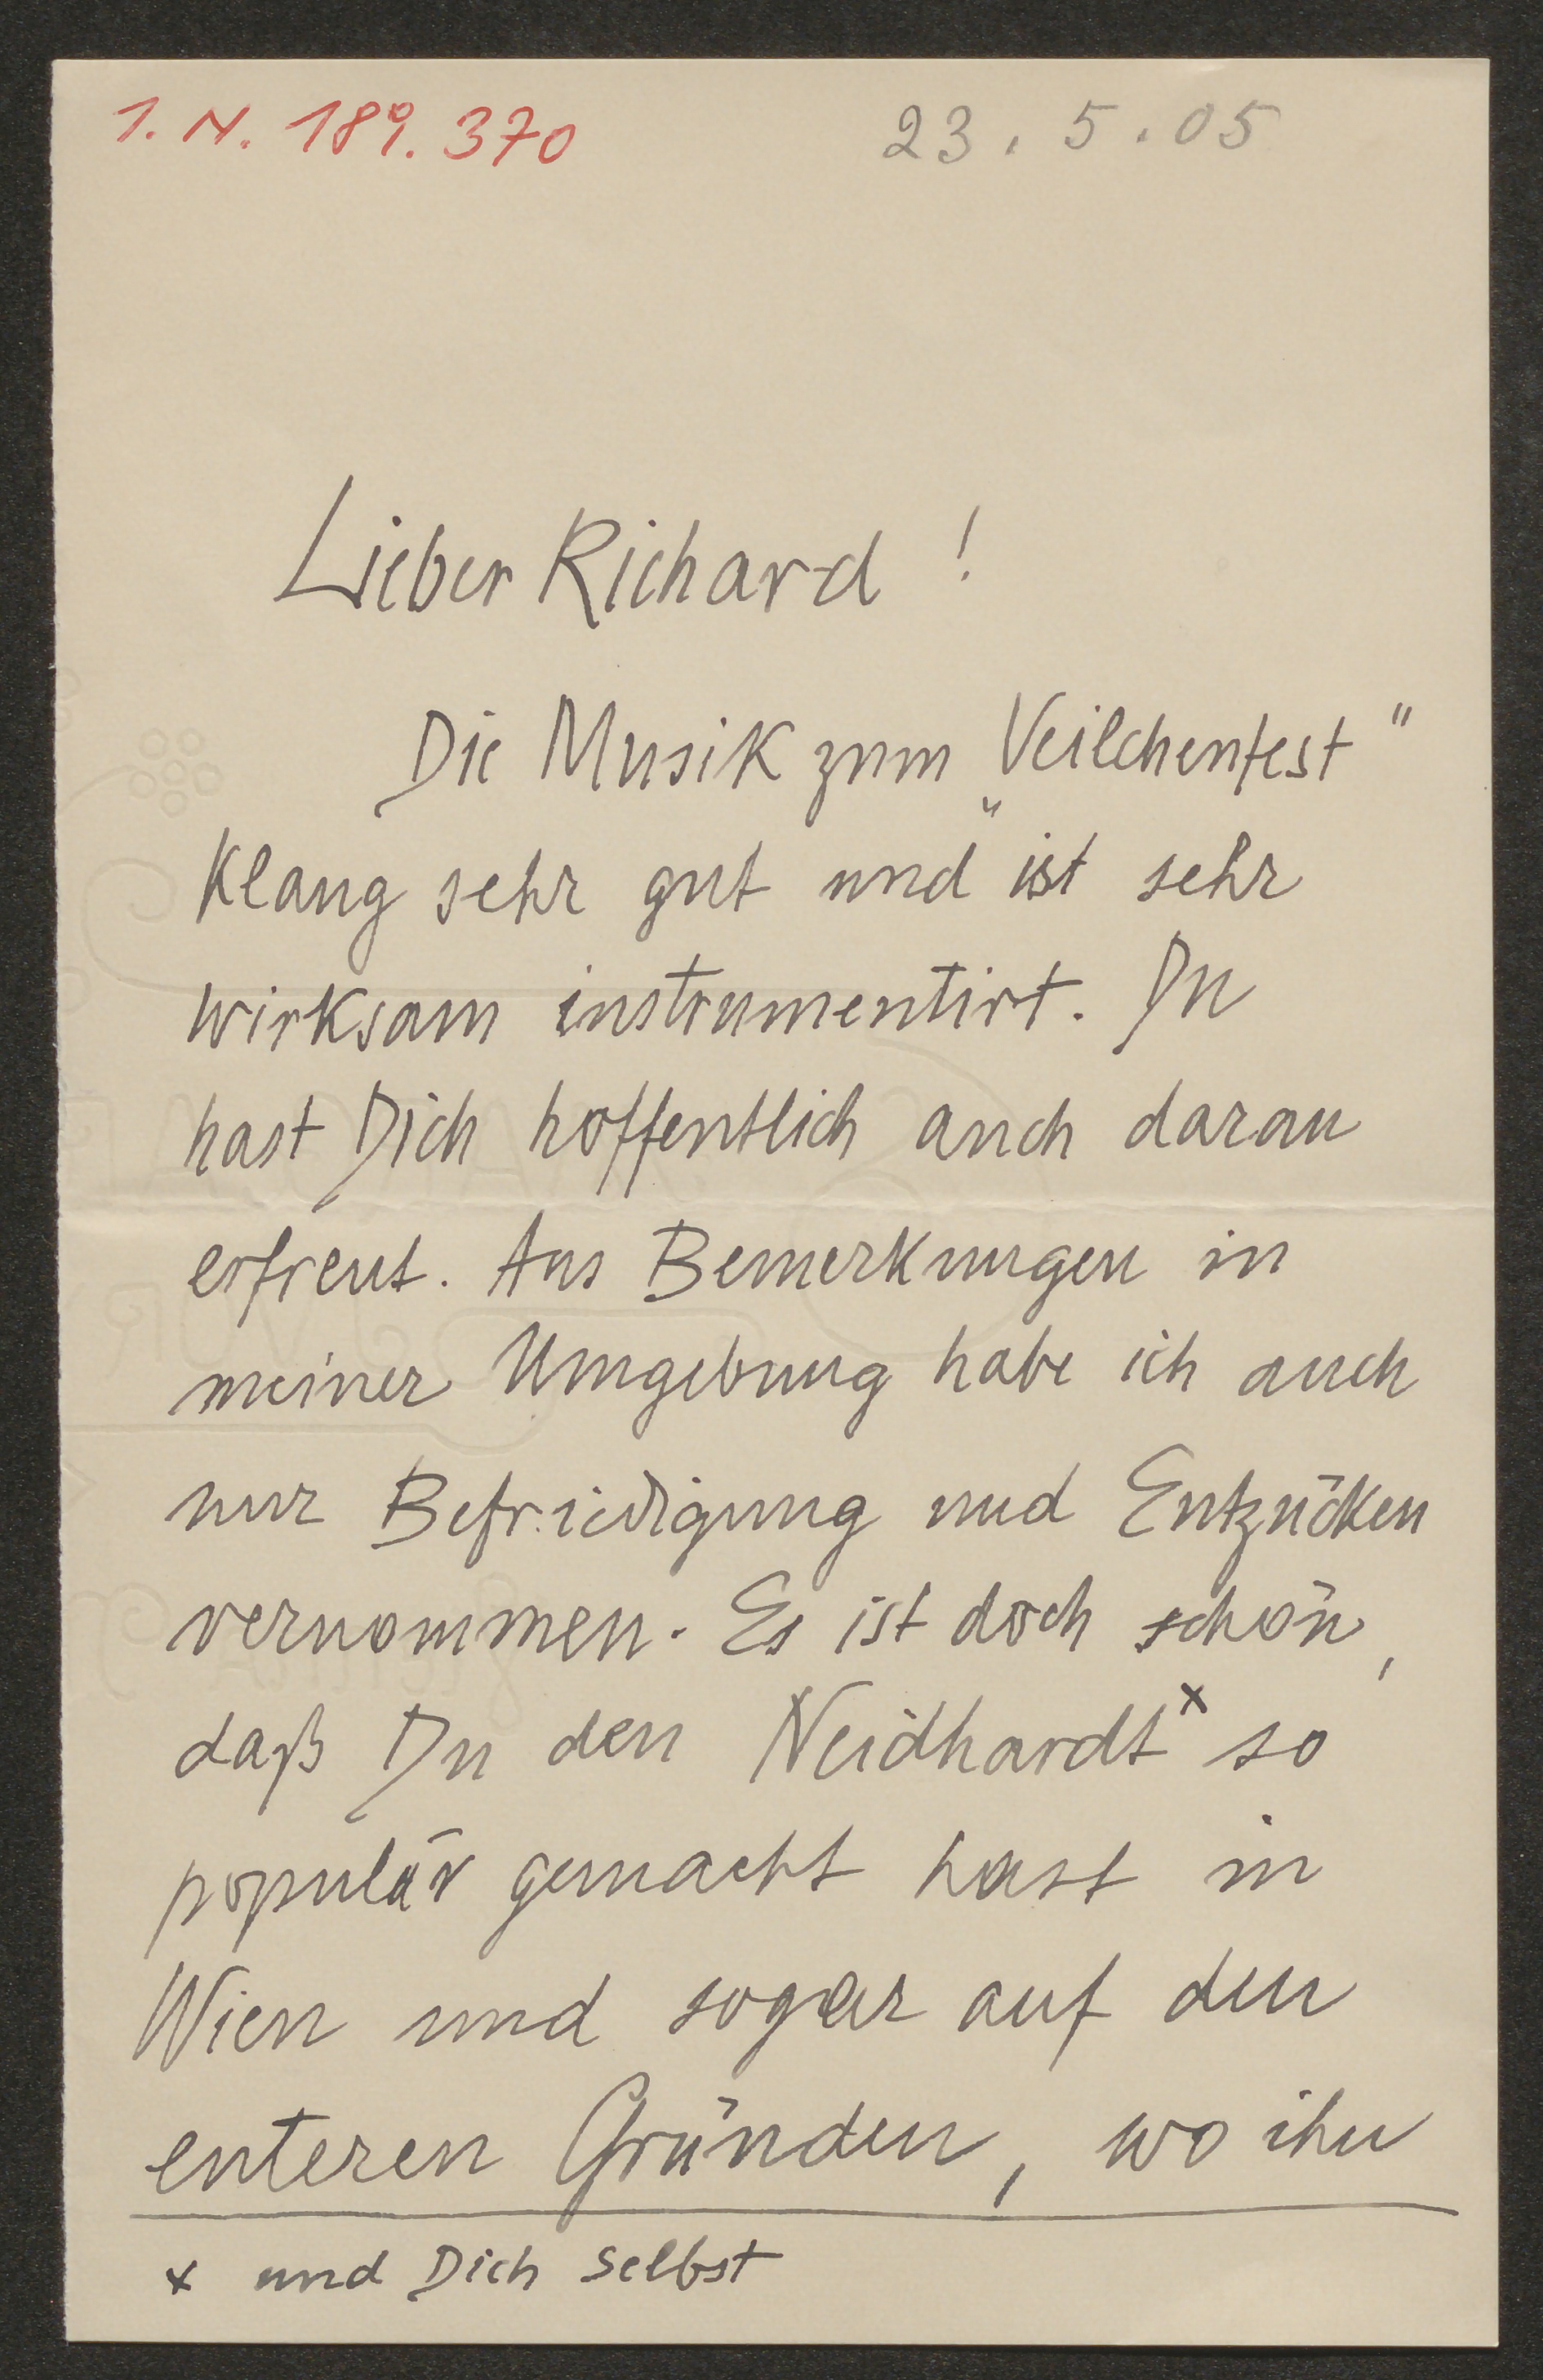 I. N. 189.370
23.5.05
Lieber Richard!
Die Musik zum „Veilchenfest"
klang sehr gut und ist sehr
wirksam instrumentirt. Du
hast Dich hoffentlich auch daran
erfreut. Aus Bemerkungen in
meiner Umgebung habe ich auch
nur Befriedigung und Entzücken
vernommen. Es ist doch schön,
daß Du den Neidhardt x so
populär gemacht hast in
Wien und sogar auf den
enteren Gründen, wo ihn
x und Dich selbst